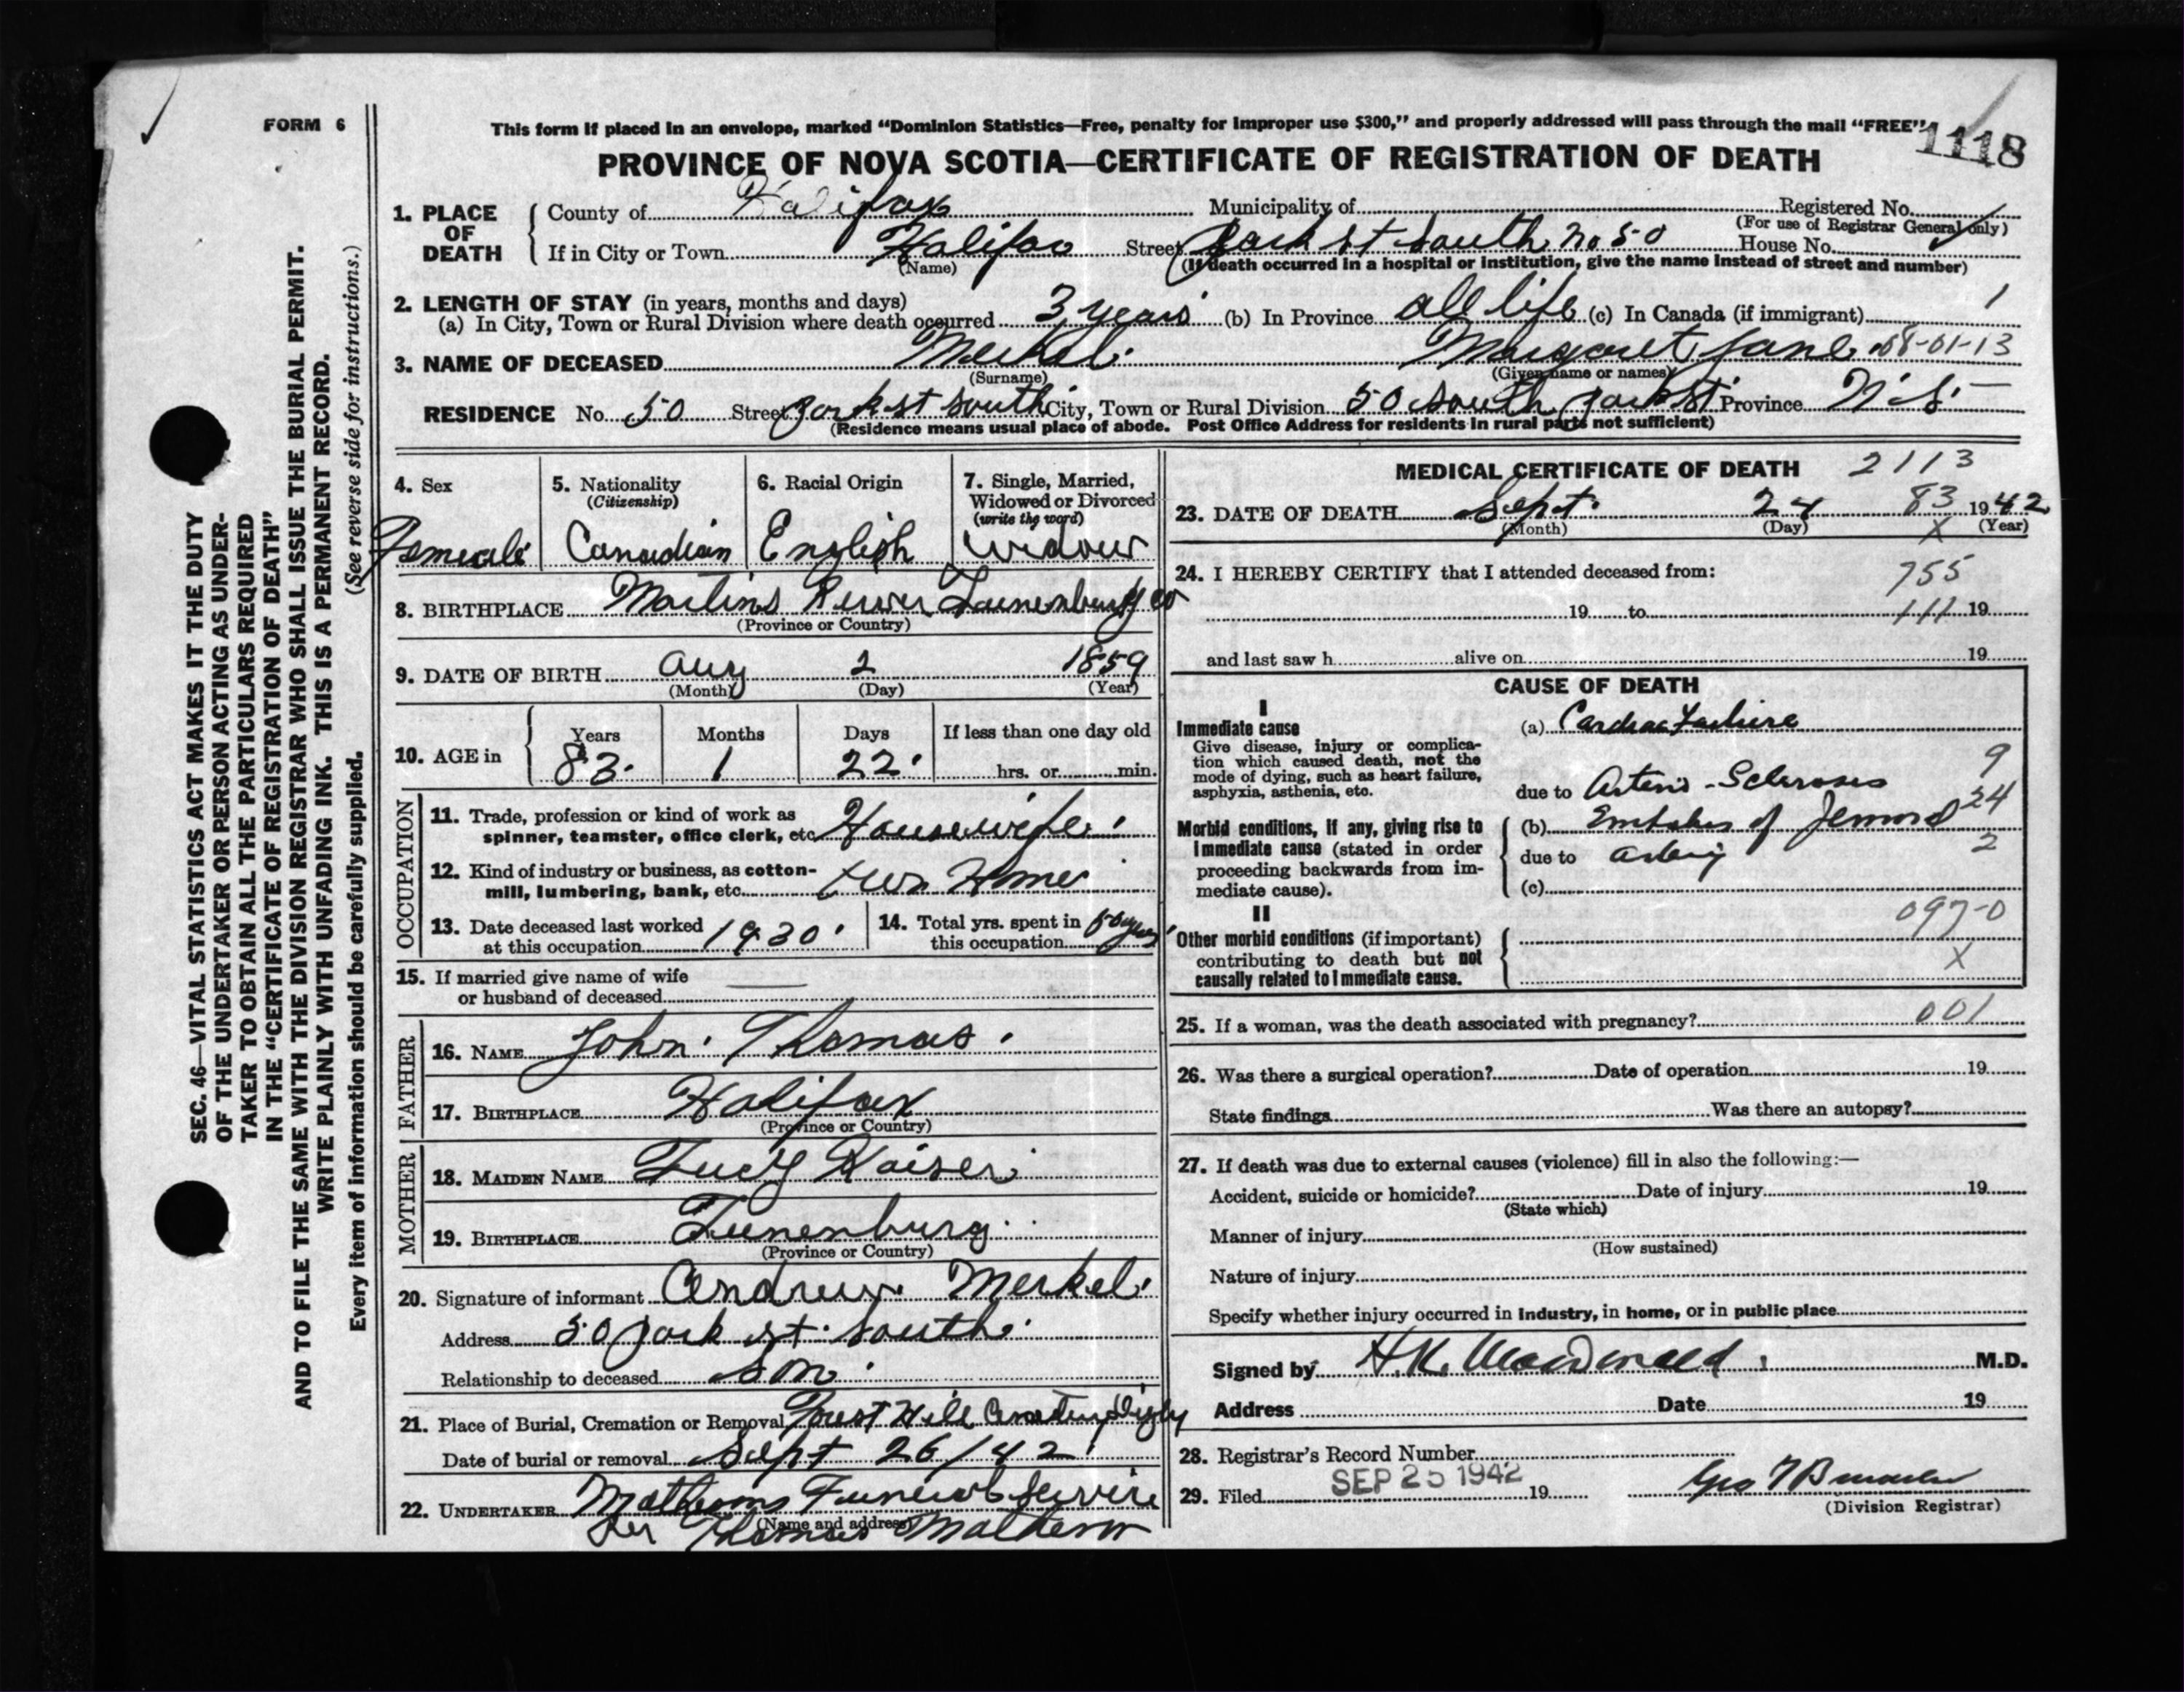 FORM 6
This form if placed in an envelope, marked “Dominion Statistics—Free, penalty for improper use $300,” and properly addressed will pass through the mail “FREE”.
1118
PROVINCE OF NOVA SCOTIA—CERTIFICATE OF REGISTRATION OF DEATH
1. PLACE OF DEATH
County of Halifax Municipality of Registered No.
(For use of Registrar General only)
If in City or Town Halifax Street Park st South no 50 House No.
(Name) (If death occurred in a hospital or institution, give the name instead of street and number)
2. LENGTH OF STAY (in years, months and days)
(a) In City, Town or Rural Division where death occurred 3 years (b) In Province all life (c) In Canada (if immigrant) 1
3. NAME OF DECEASED Merkel Margaret Jane 08-01-13
(Surname) (Given name or names)
RESIDENCE No. 50 Street Park st South City, Town or Rural Division 50 South Park St Province N.S.
(Residence means usual place of abode. Post Office Address for residents in rural parts not sufficient)
4. Sex Female
5. Nationality (Citizenship) Canadian
6. Racial Origin English
7. Single, Married, Widowed or Divorced (write the word) Widow
8. BIRTHPLACE Martins River Lunenburg Co
(Province or Country)
9. DATE OF BIRTH Aug 2 1859
(Month) (Day) (Year)
10. AGE in Years 83 Months 1 Days 22 If less than one day old
hrs. or min.
OCCUPATION
11. Trade, profession or kind of work as spinner, teamster, office clerk, etc. Housewife
12. Kind of industry or business, as cotton-mill, lumbering, bank, etc. own Home
13. Date deceased last worked at this occupation 1930
14. Total yrs. spent in this occupation 50 yrs
15. If married give name of wife or husband of deceased —
FATHER
16. NAME John Thomas
17. BIRTHPLACE Halifax
(Province or Country)
MOTHER
18. MAIDEN NAME Lucy Kaiser
19. BIRTHPLACE Lunenburg
(Province or Country)
20. Signature of informant Andrew Merkel
Address 50 park st South
Relationship to deceased son
21. Place of Burial, Cremation or Removal Forest Hill Cemetery Digby
Date of burial or removal Sept 26/42
22. UNDERTAKER Funeral Service
(Name and address)
per Thomas
MEDICAL CERTIFICATE OF DEATH 2113
23. DATE OF DEATH Sept. 24 83 1942
(Month) (Day) X (Year)
24. I HEREBY CERTIFY that I attended deceased from: 755
19 to 111 19
and last saw h alive on 19
CAUSE OF DEATH
I
Immediate cause
Give disease, injury or complication which caused death, not the mode of dying, such as heart failure, asphyxia, asthenia, etc.
(a) Cardiac Failure
9
due to Arterio-Sclerosis
24
Morbid conditions, if any, giving rise to immediate cause (stated in order proceeding backwards from immediate cause).
(b) Embolus of
due to artery 2
(c)
II
097-0
Other morbid conditions (if important) contributing to death but not causally related to immediate cause.
X
25. If a woman, was the death associated with pregnancy? 001
26. Was there a surgical operation? Date of operation 19
State findings Was there an autopsy?
27. If death was due to external causes (violence) fill in also the following:—
Accident, suicide or homicide? Date of injury 19
(State which)
Manner of injury
(How sustained)
Nature of injury
Specify whether injury occurred in industry, in home, or in public place
Signed by H.K. MacDonald M.D.
Address Date 19
28. Registrar's Record Number
29. Filed SEP 25 1942 19
(Division Registrar)
SEC. 46—VITAL STATISTICS ACT MAKES IT THE DUTY
OF THE UNDERTAKER OR PERSON ACTING AS UNDER-
TAKER TO OBTAIN ALL THE PARTICULARS REQUIRED
IN THE “CERTIFICATE OF REGISTRATION OF DEATH”
AND TO FILE THE SAME WITH THE DIVISION REGISTRAR WHO SHALL ISSUE THE BURIAL PERMIT.
WRITE PLAINLY WITH UNFADING INK. THIS IS A PERMANENT RECORD.
Every item of information should be carefully supplied. (See reverse side for instructions.)